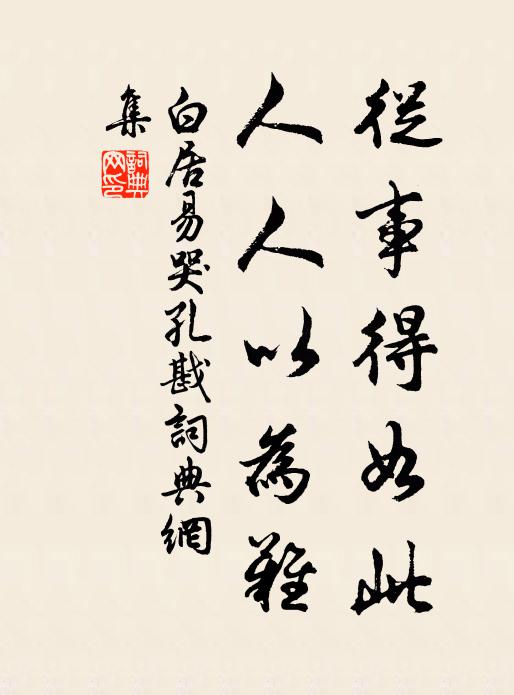 從事得如此
人人以為難
白居易哭孔戡詞典網
集
詞典
网印